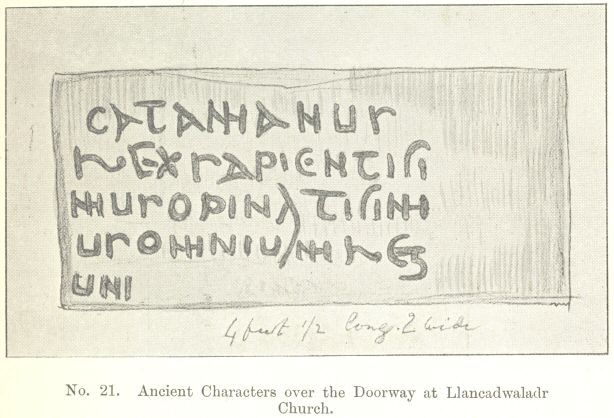 CATAMANUS
REXSAPIENTISI
MUSOPINATISIM
USOMNIUMREG
UM
4 feet 1/2 long. 2 wide
No. 21. Ancient Characters over the Doorway at Llancadwaladr
Church.